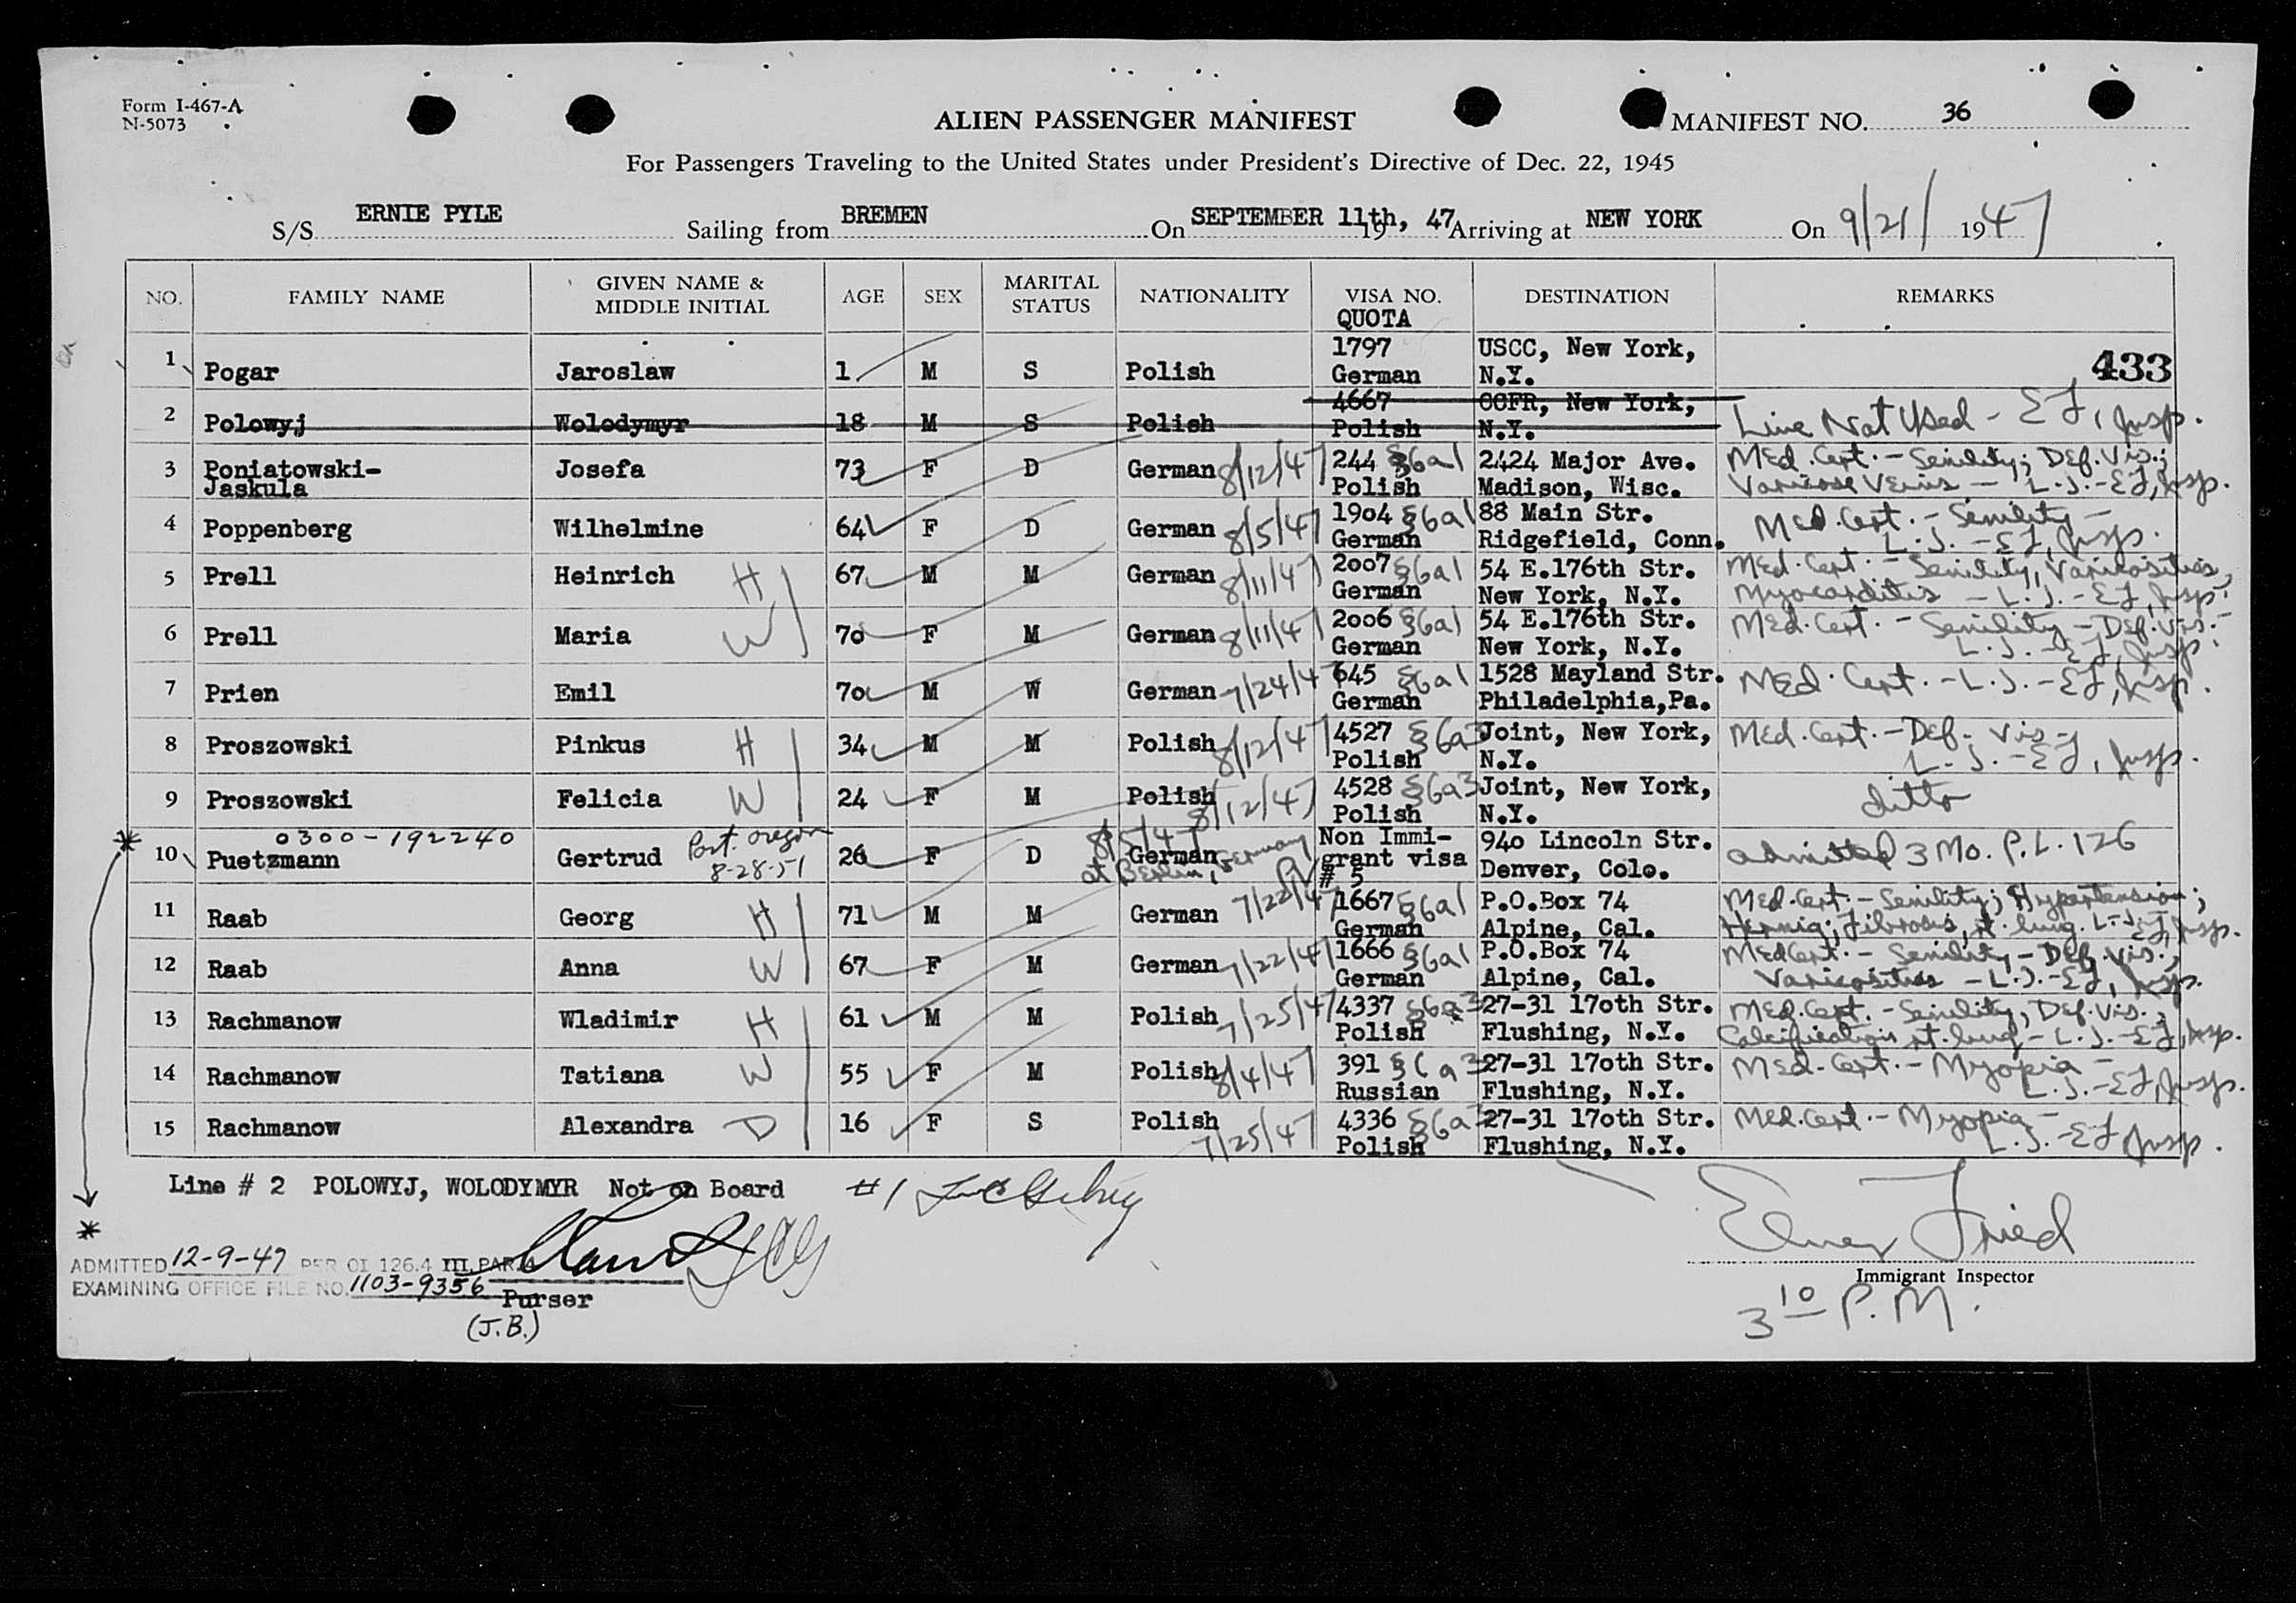 Form I-467-A
N-5073
ALIEN PASSENGER MANIFEST
MANIFEST NO. 36
For Passengers Traveling to the United States under President's Directive of Dec. 22, 1945
S/S ERNIE PYLE Sailing from BREMEN On SEPTEMBER 11th, 1947 Arriving at NEW YORK On 9/21/1947
NO. FAMILY NAME GIVEN NAME & MIDDLE INITIAL AGE SEX MARITAL STATUS NATIONALITY VISA NO. QUOTA DESTINATION REMARKS
1 Pogar Jaroslaw 1 M S Polish 1797 German USCC, New York, N.Y. 433
2 Polowyj Wolodymyr 18 M S Polish 4667 Polish CCFR, New York, N.Y. Line Not Used - EF, Insp.
3 Poniatowski-Jaskula Josefa 73 F D German 8/12/47 244 §6a1 Polish 2424 Major Ave. Madison, Wisc. Med. Cert. - Senility; Def. Vis.; Varicose Veins - L.J. - EF, Insp.
4 Poppenberg Wilhelmine 64 F D German 8/5/47 1904 §6a1 German 88 Main Str. Ridgefield, Conn. Med. Cert. - Senility - L.J. - EF, Insp.
5 Prell Heinrich H 67 M M German 8/11/47 2007 §6a1 German 54 E.176th Str. New York, N.Y. Med. Cert. - Senility, Varicosities, Myocarditis - L.J. - EF, Insp.
6 Prell Maria W 70 F M German 8/11/47 2006 §6a1 German 54 E.176th Str. New York, N.Y. Med. Cert. - Senility - Def. Vis. - L.J. - EF, Insp.
7 Prien Emil 70 M W German 7/24/47 645 §6a1 German 1528 Mayland Str. Philadelphia,Pa. Med. Cert. - L.J. - EF, Insp.
8 Proszowski Pinkus H 34 M M Polish 8/12/47 4527 §6a3 Polish Joint, New York, N.Y. Med. Cert. - Def. Vis - L.J. - EF, Insp.
9 Proszowski Felicia W 24 F M Polish 8/12/47 4528 §6a3 Polish Joint, New York, N.Y. ditto
* 0300-192240
10 Puetzmann Gertrud Port. Oregon 8-28-51 26 F D 8/5/47 German at Berlin, Germany Non Immigrant visa # 5 940 Lincoln Str. Denver, Colo. admitted 3 Mo. P.L. 126
11 Raab Georg H 71 M M German 7/22/47 1667 §6a1 German P.O.Box 74 Alpine, Cal. Med. Cert. - Senility; Hypertension; Hernia; Fibrosis, rt. lung. L.J. - EF, Insp.
12 Raab Anna W 67 F M German 7/22/47 1666 §6a1 German P.O.Box 74 Alpine, Cal. Med Cert. - Senility - Def. Vis., Varicosities - L.J. - EF, Insp.
13 Rachmanow Wladimir H 61 M M Polish 7/25/47 4337 §6a3 Polish 27-31 170th Str. Flushing, N.Y. Med. Cert. - Senility, Def. Vis.; Calcification rt. lung - L.J. - EF, Insp.
14 Rachmanow Tatiana W 55 F M Polish 8/4/47 391 §6a3 Russian 27-31 170th Str. Flushing, N.Y. Med. Cert. - Myopia - L.J. - EF, Insp.
15 Rachmanow Alexandra D 16 F S Polish 7/25/47 4336 §6a3 Polish 27-31 170th Str. Flushing, N.Y. Med. Cert. - Myopia - L.J. - EF Insp.
Line # 2 POLOWYJ, WOLODYMYR Not on Board #1
*
ADMITTED 12-9-47 PER OI 126.4 III, PAR.
EXAMINING OFFICE FILE NO. 1103-9356
Purser
(J.B.)
Elmer Fried
Immigrant Inspector
3 10 P.M.